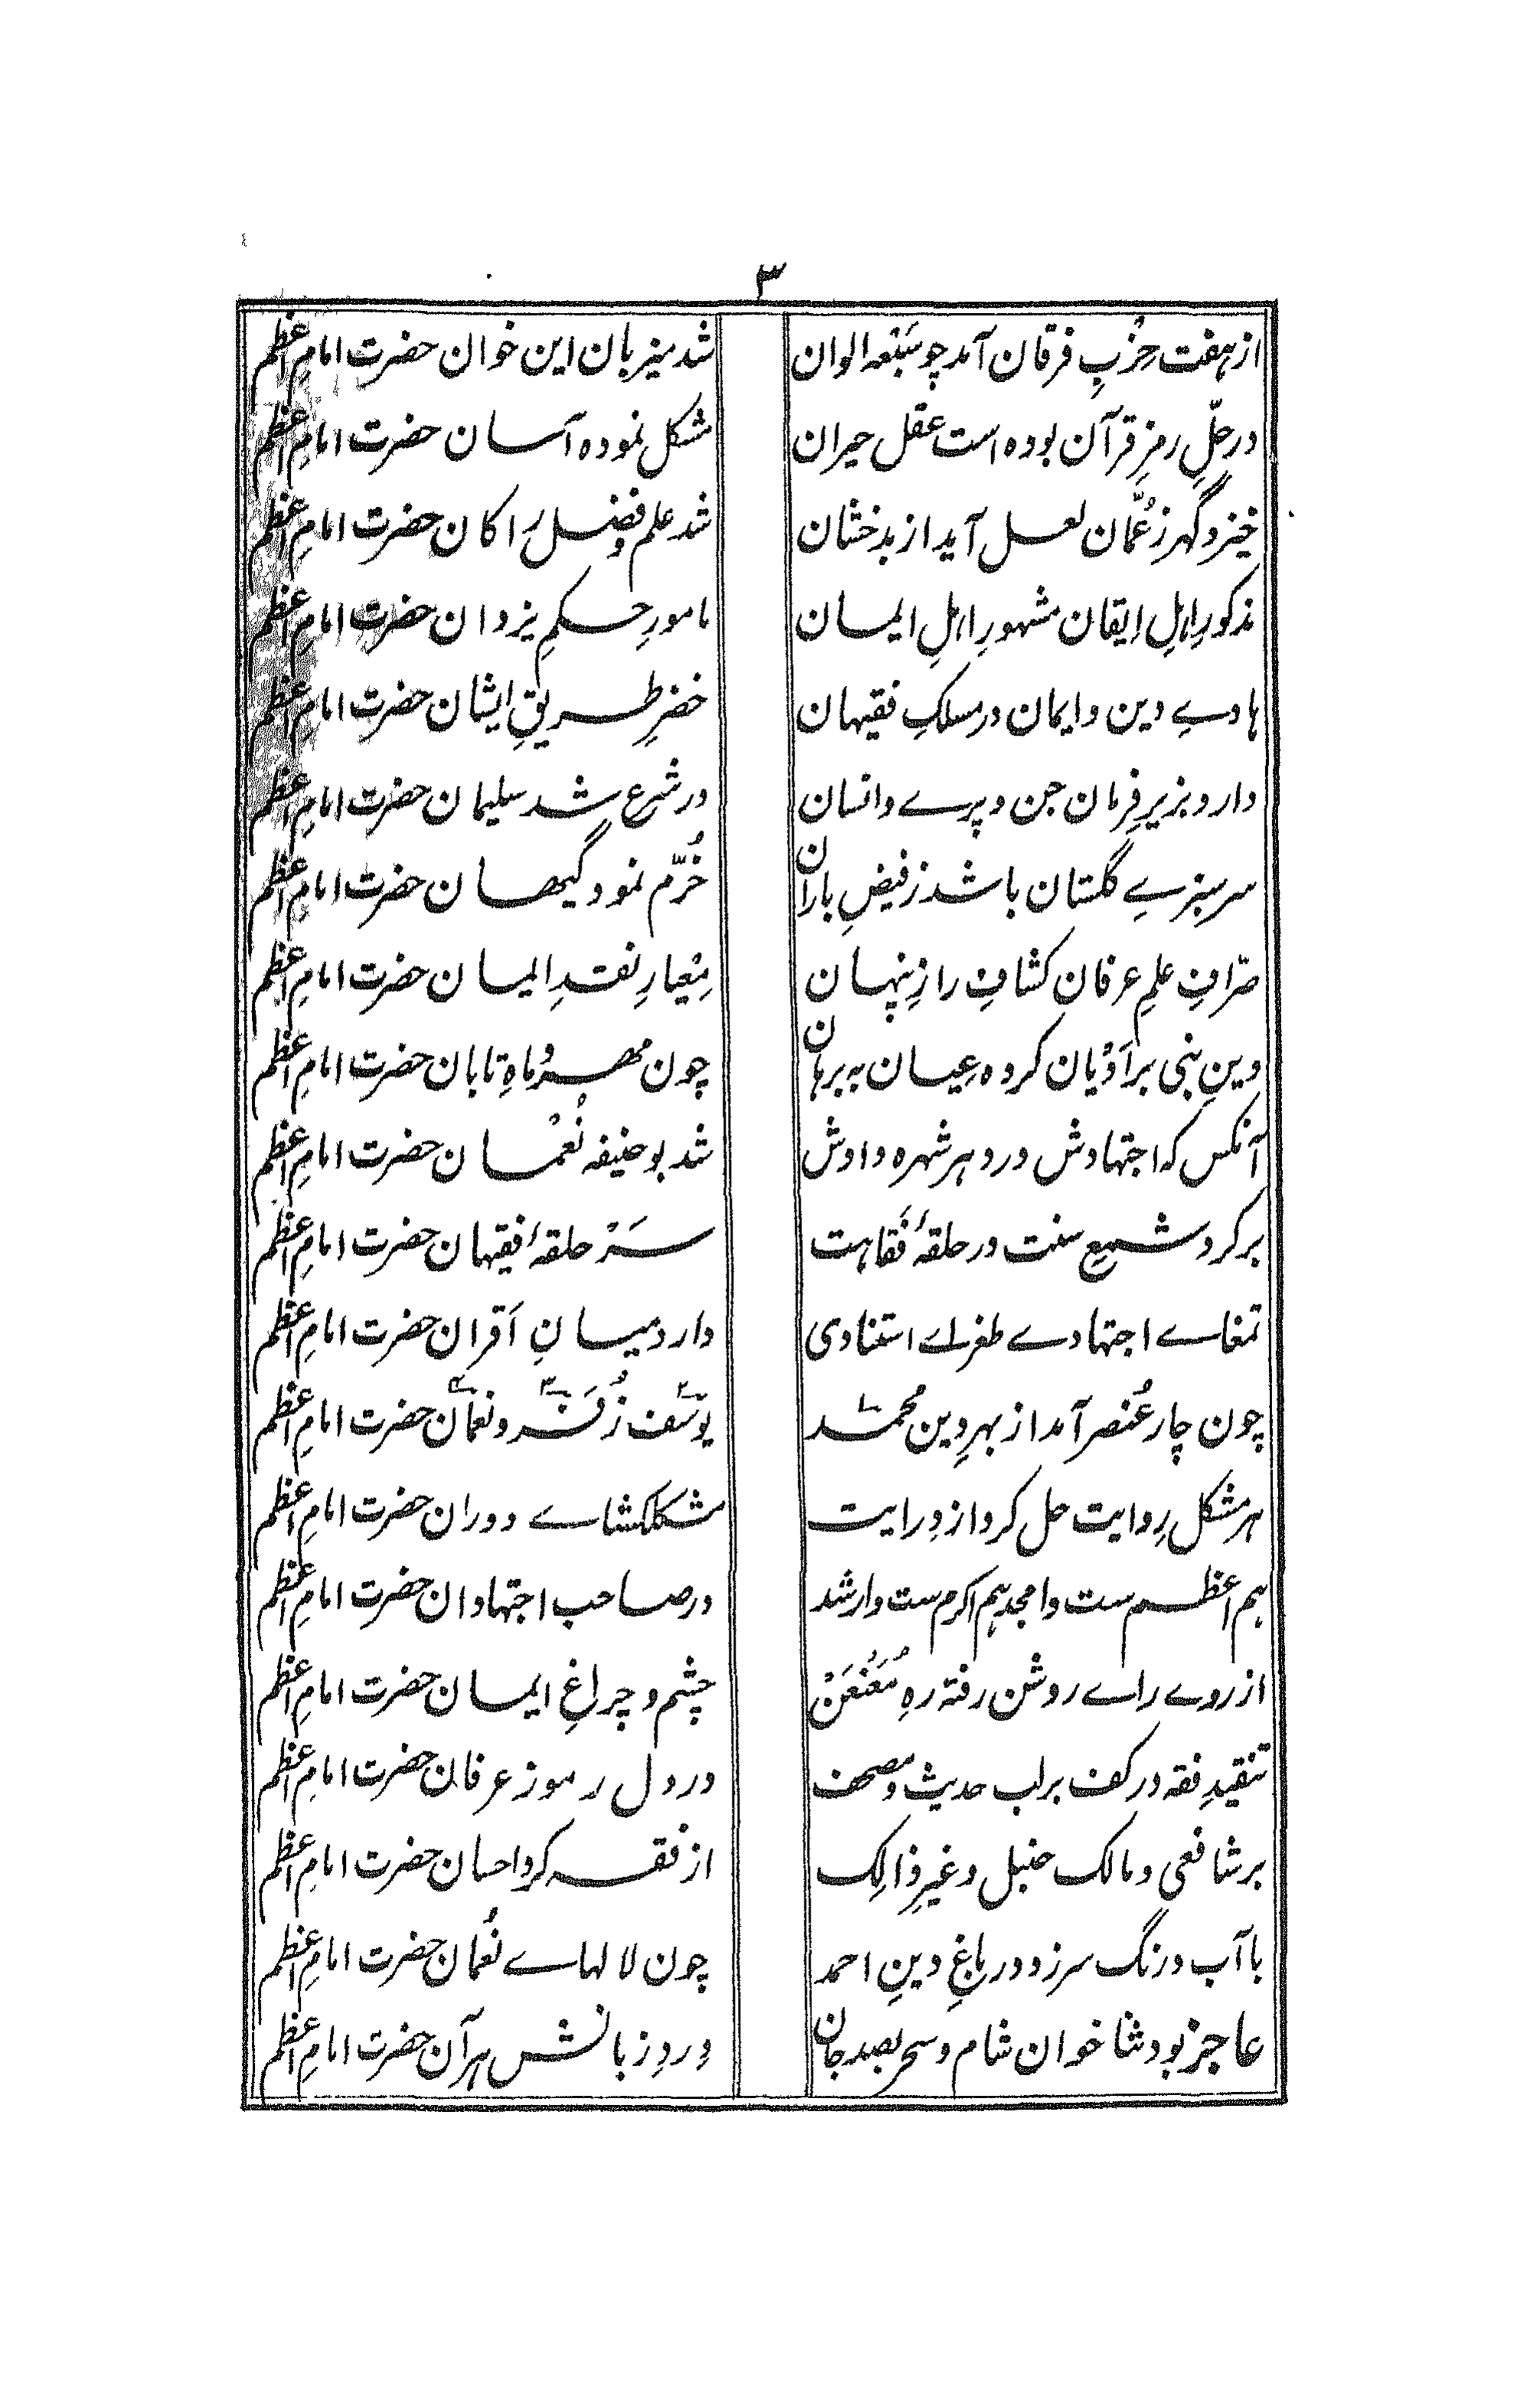 ۳
از ہفت حِزْبِ فرقان آمد چو سَبْعہ الوان شد میزبان این خوان حضرت امامِ اعظم
در حلِّ رمزِ قرآن بودہ است عقل حیران مشکل نمودہ آسان حضرت امامِ اعظم
خیزد گہر ز عُمّان لعل آید از بدخشان شد علم و فضل را کان حضرت امامِ اعظم
مذکورِ اہلِ ایقان مشہورِ اہلِ ایمان مامورِ حکمِ یزدان حضرت امامِ اعظم
ہادے دین و ایمان در مسلکِ فقیہان خضرِ طریقِ ایشان حضرت امامِ اعظم
دارد بزیرِ فرمان جن و پرے و انسان در شرع شد سلیمان حضرت امامِ اعظم
سرسبزےِ گلستان باشد ز فیضِ باران خُرّم نمود گیہان حضرت امامِ اعظم
صرّافِ علمِ عرفان کشافِ رازِ پنہان مِعْیارِ نقدِ ایمان حضرت امامِ اعظم
دینِ نبی بر اَدْیان کردہ عِیان بہ برہان چون مہر و ماہِ تابان حضرت امامِ اعظم
آنکس کہ اجتہادش در دہر شہرہ دادش شد بوحنیفہ نُعْمان حضرت امامِ اعظم
بر کرد شمعِ سنت در حلقۂ فَقاہت سَرْ حلقۂ فقیہان حضرت امامِ اعظم
تمغاے اجتہادے طغراے استنادی دارد میانِ اَقران حضرت امامِ اعظم
چون چار عُنصر آمد از بہرِ دین محمد یوسف زُفَر و نعمان حضرت امامِ اعظم
ہر مشکل رِوایت حل کرد از دِرایت مشکلکشاے دوران حضرت امامِ اعظم
ہم اعظم ست و امجد ہم اکرم ست و ارشد در صاحب اجتہادان حضرت امامِ اعظم
از روے راے روشن رفتہ رہِ مُعَنْعَنْ چشم و چراغِ ایمان حضرت امامِ اعظم
تنقیدِ فقہ در کف بر لب حدیث و مصحف در دل رموز عرفان حضرت امامِ اعظم
بر شافعی و مالک حنبل و غیرِ ذالِک از فقہ کرد احسان حضرت امامِ اعظم
با آب و رنگ سرزد در باغِ دینِ احمد چون لالہاے نُعمان حضرت امامِ اعظم
عاجز بود ثنا خوان شام و سحر بصد جان وِردِ زبانش ہر آن حضرت امامِ اعظم